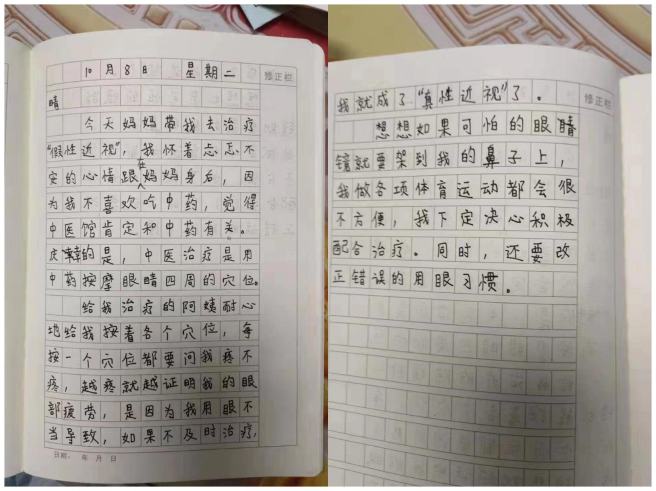 10月8日 星期二 修正栏
晴
今天妈妈带我去治疗
“假性近视”，我怀着忐忑不
安的心情跟在妈妈身后，因
为我不喜欢吃中药，觉得
中医馆肯定和中药有关。
庆幸的是，中医治疗是用
中药按摩眼睛四周的穴位。
给我治疗的阿姨耐心
地给我按着各个穴位，每
按一个穴位都要问我疼不
疼，越疼就越证明我的眼
部疲劳，是因为我用眼不
当导致，如果不及时治疗，
日期： 年 月 日
我就成了“真性近视”了。 修正栏
想想如果可怕的眼睛
镜就要架到我的鼻子上，
我做各项体育运动都会很
不方便，我下定决心积极
配合治疗。同时，还要改
正错误的用眼习惯。